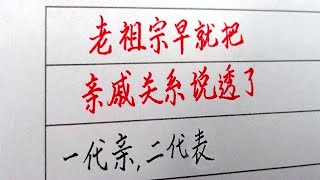 老祖宗早就把
亲戚关系说透了
一代亲,二代表